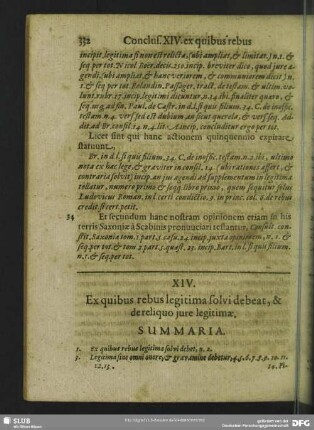 332 Conclus. XIV. ex quibus rebus
incipit, legitima si non est relicta, (ubi ampliat, & limitat,) n. 1. &
seq. per tot. Nicol. Boer. decis. 231. incip. breviter dico, quod jure a-
gendi, (ubi ampliat, & hanc veriorem, & communiorem dicit) n.
1. & seq. per tot. Rolandin. Passager. tract. de testam. & ultim. vo-
lunt. rubr. 27. incip. legitimi dicuntur, n. 24. ibi, finaliter quaro, &
seq.
testam. n. 4. vers. sed est dubium an sicut querela, & vers. seq. Ad-
dit. ad Br. consil. 14. n. 4. lit. A. incip. concluditur ergo per tot.
Licet sint qui hanc actionem quinquennio expirare
statuunt.
Br. in d. l. si quis filium. 34. C. de inoffic. testam. n. 2. ibi, ultimo
nota ex hac lege, & graviter in consil. 14. (ubi rationes affert, &
contraria solvit) incip. an jus agendi ad supplementum in legitima
relictar, numero primo & seqq. libro primo, quem sequitur filius
Ludovicus Roman. in l. certi conditio. 9. in princ. col. 6. de rebus
credit. si cert. petit.
34 Et secundum hanc nostram opinionem etiam in his
terris Saxoniæ à Scabinis pronunciari testantur, Consult. con-
stit. Saxonia tom. 1. part. 3. cas. 24. incip. juxta opinionem, n. 2. &
seq. per tot. & tom. 3. part. 3. quæst. 21. incip. Bart. in l. si quis filium.
n. 1. & seq. per tot.
XIV.
Ex quibus rebus legitima solvi debeat, &
de reliquo jure legitimæ.
SUMMARIA.
1. Ex quibus rebus legitima solvi debet, n. 2.
3. Legitima sine omni onere, & gravamine debitur, 4. 5. 6. 7. 8. 9. 10. 11.
12. 13.
SLUB
Wir führen Wissen.
gefördert von der
Deutschen Forschungsgemeinschaft